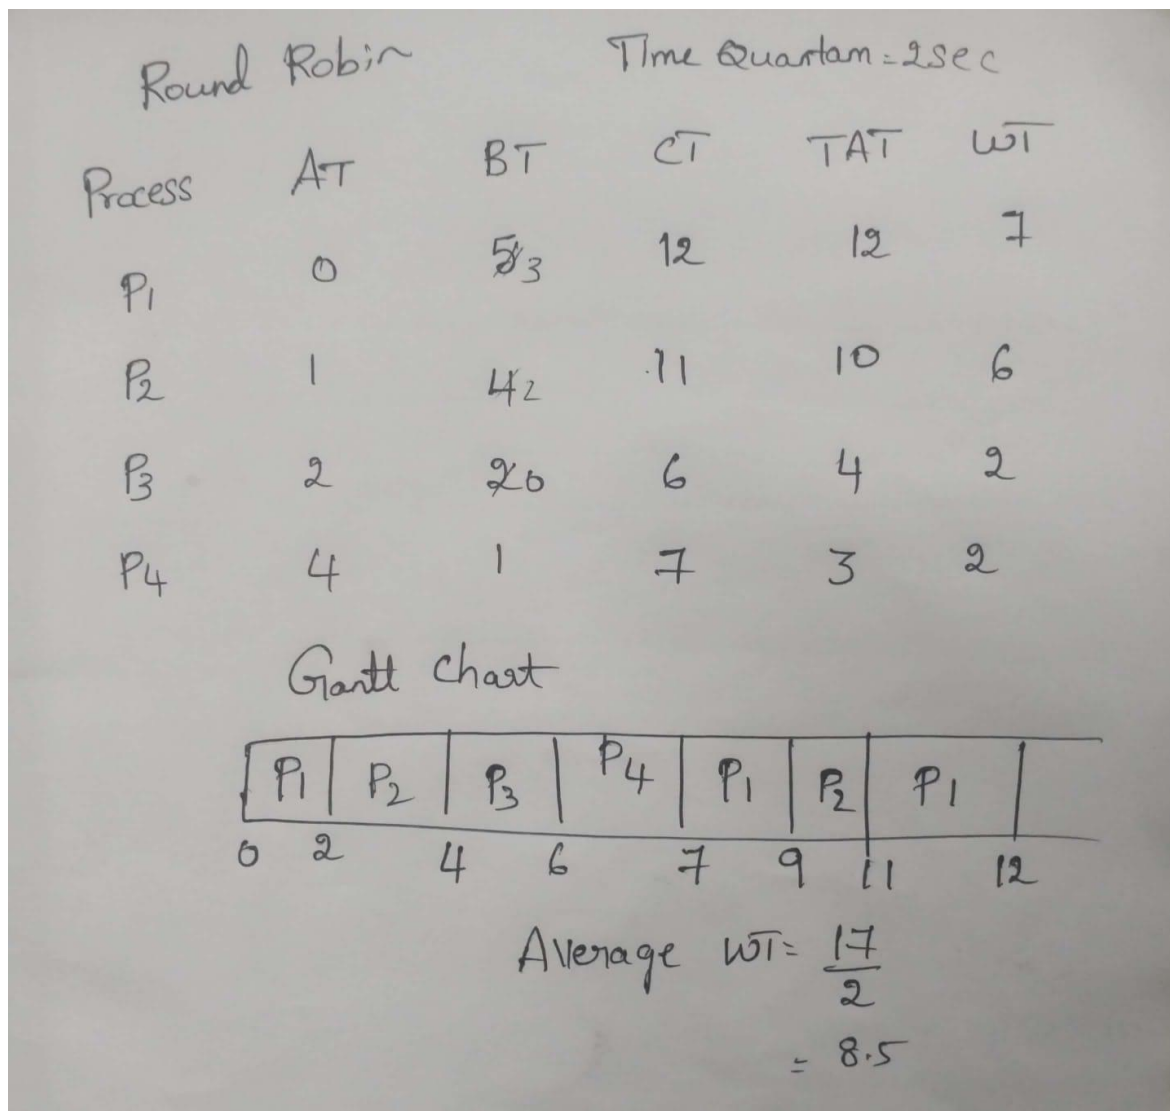 Round Robin Time Quantam = 2sec
Process AT BT CT TAT WT
P1 0 5 3 12 12 7
P2 1 4 2 11 10 6
P3 2 2 0 6 4 2
P4 4 1 7 3 2
Gantt Chart
P1 P2 P3 P4 P1 P2 P1
0 2 4 6 7 9 11 12
Average WT = 17
2
= 8.5